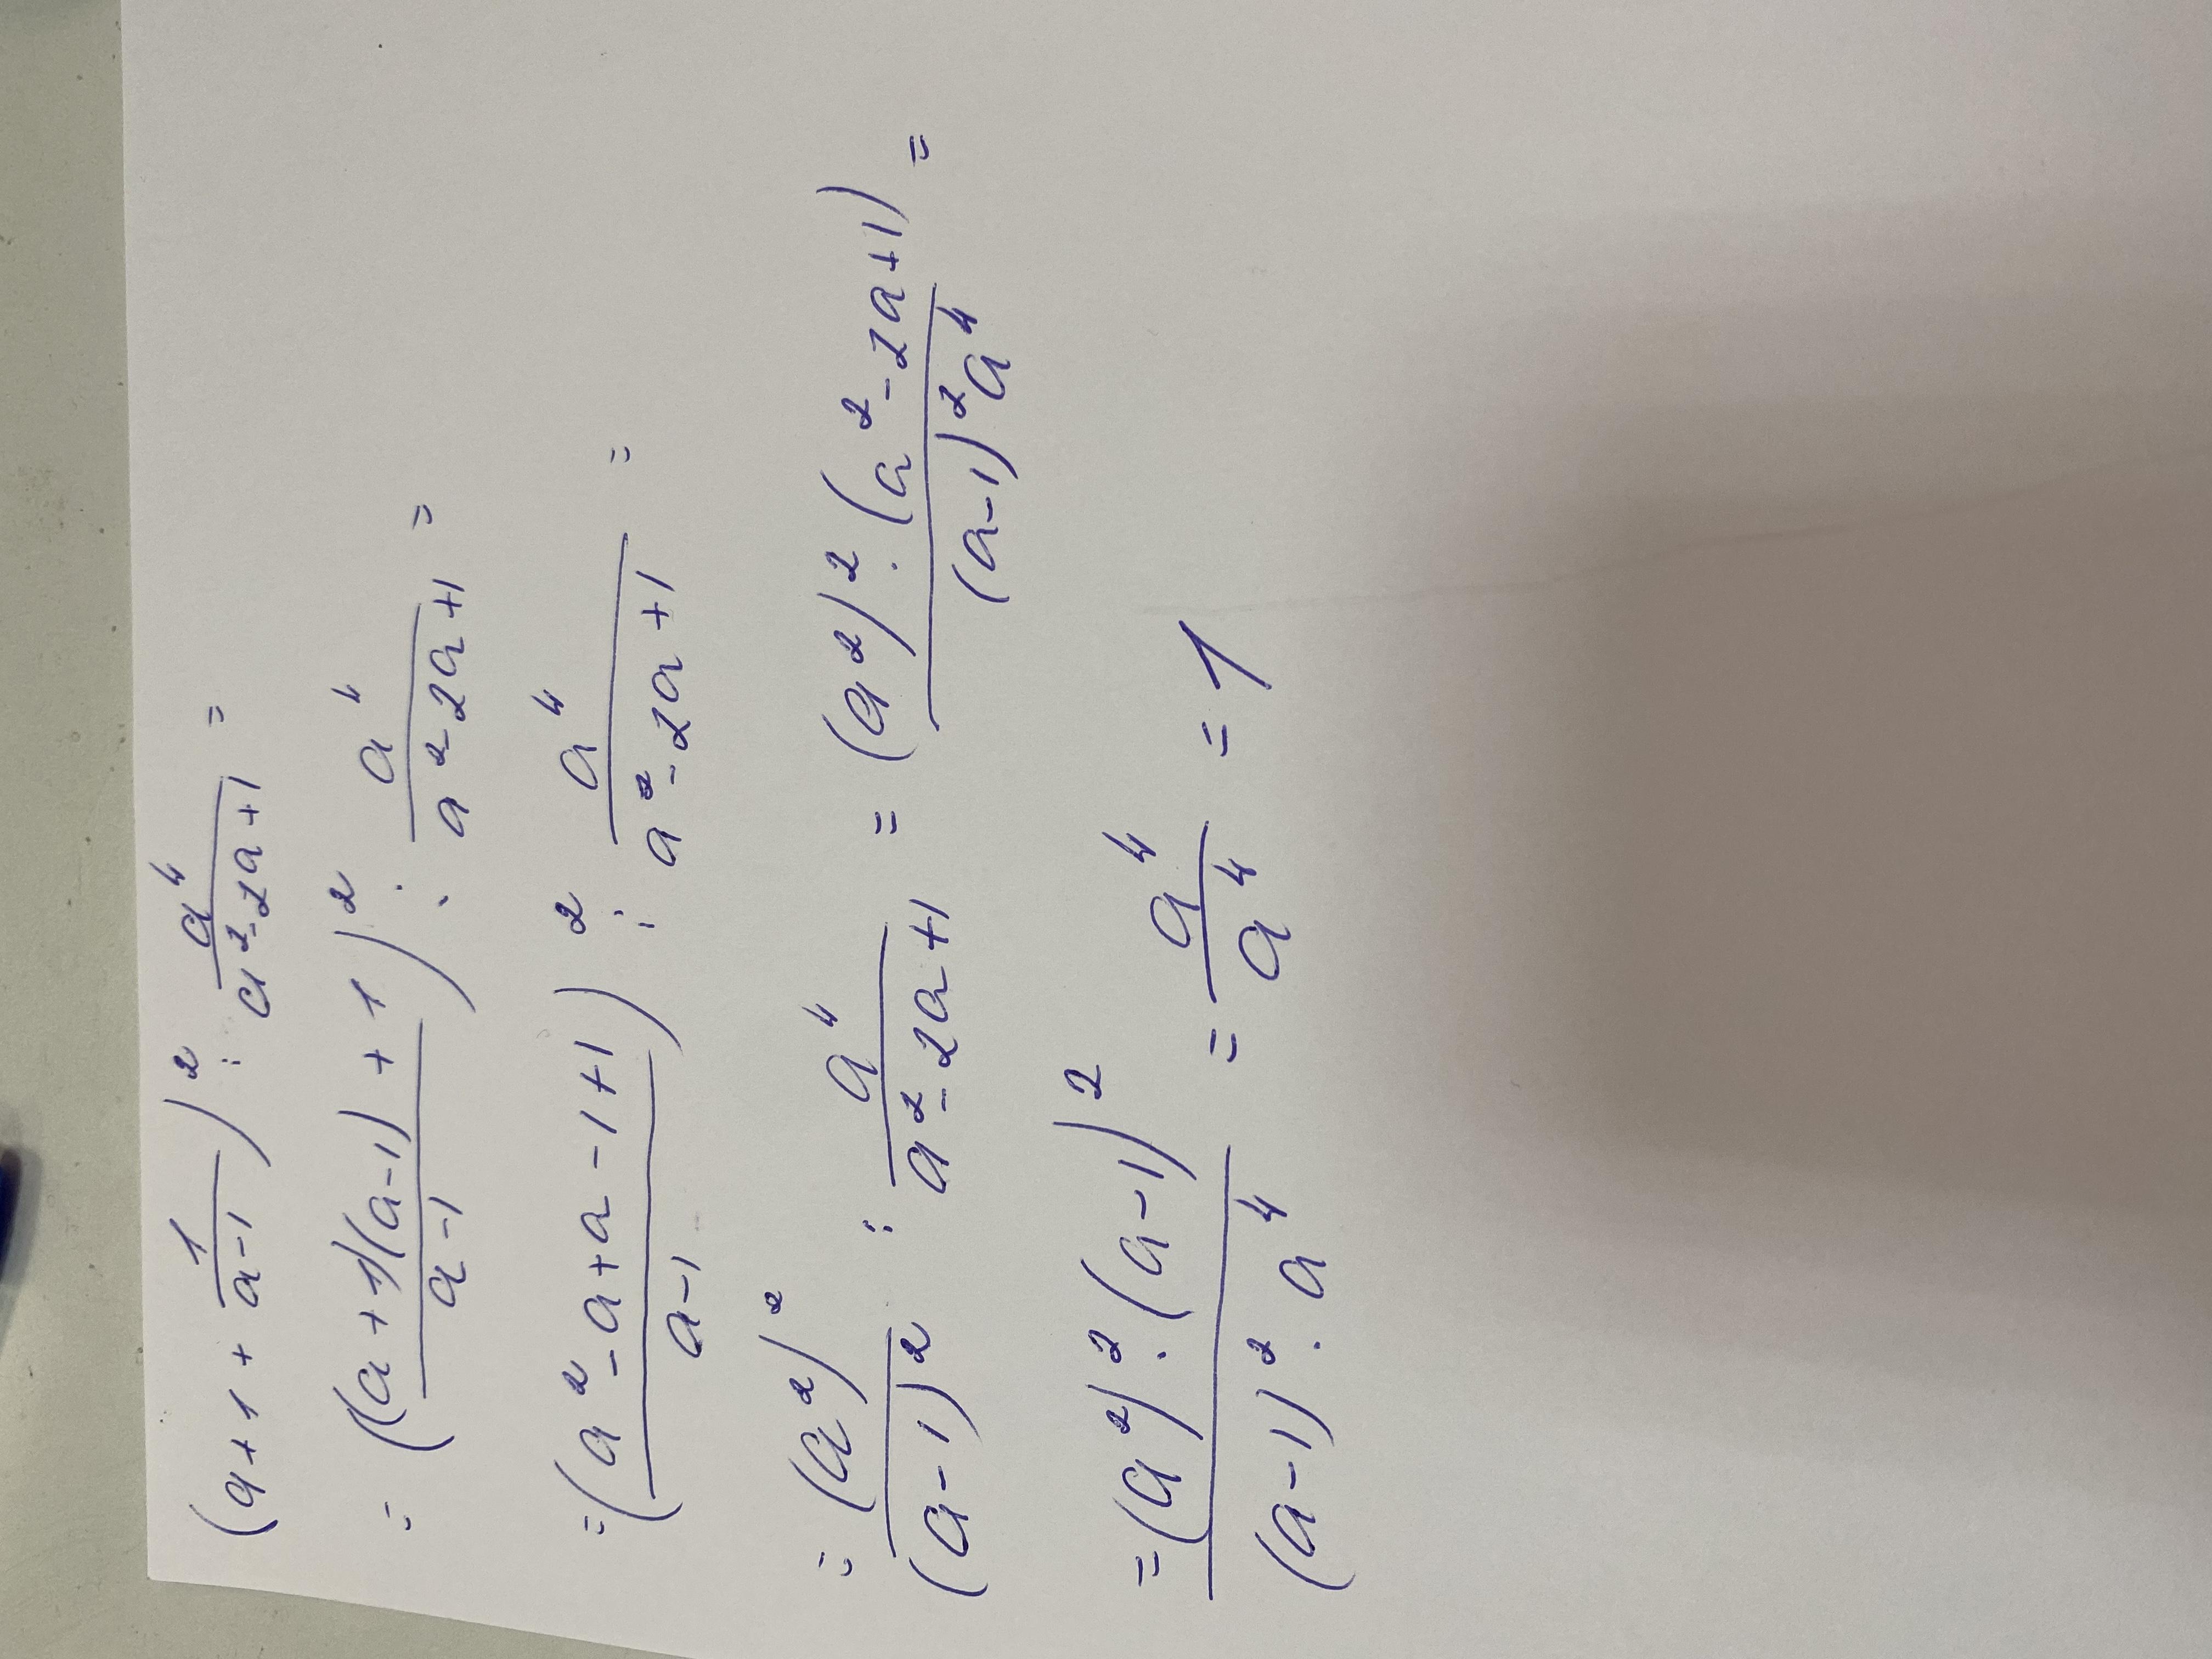 (a+1+\frac{1}{a-1})^2 : \frac{a^4}{a^2-2a+1} =
= (\frac{(a+1)(a-1)+1}{a-1})^2 : \frac{a^4}{a^2-2a+1} =
= (\frac{a^2-a+a-1+1}{a-1})^2 : \frac{a^4}{a^2-2a+1} =
= \frac{(a^2)^2}{(a-1)^2} : \frac{a^4}{a^2-2a+1} = \frac{(a^2)^2 \cdot (a^2-2a+1)}{(a-1)^2 a^4} =
= \frac{(a^2)^2 \cdot (a-1)^2}{(a-1)^2 \cdot a^4} = \frac{a^4}{a^4} = 1